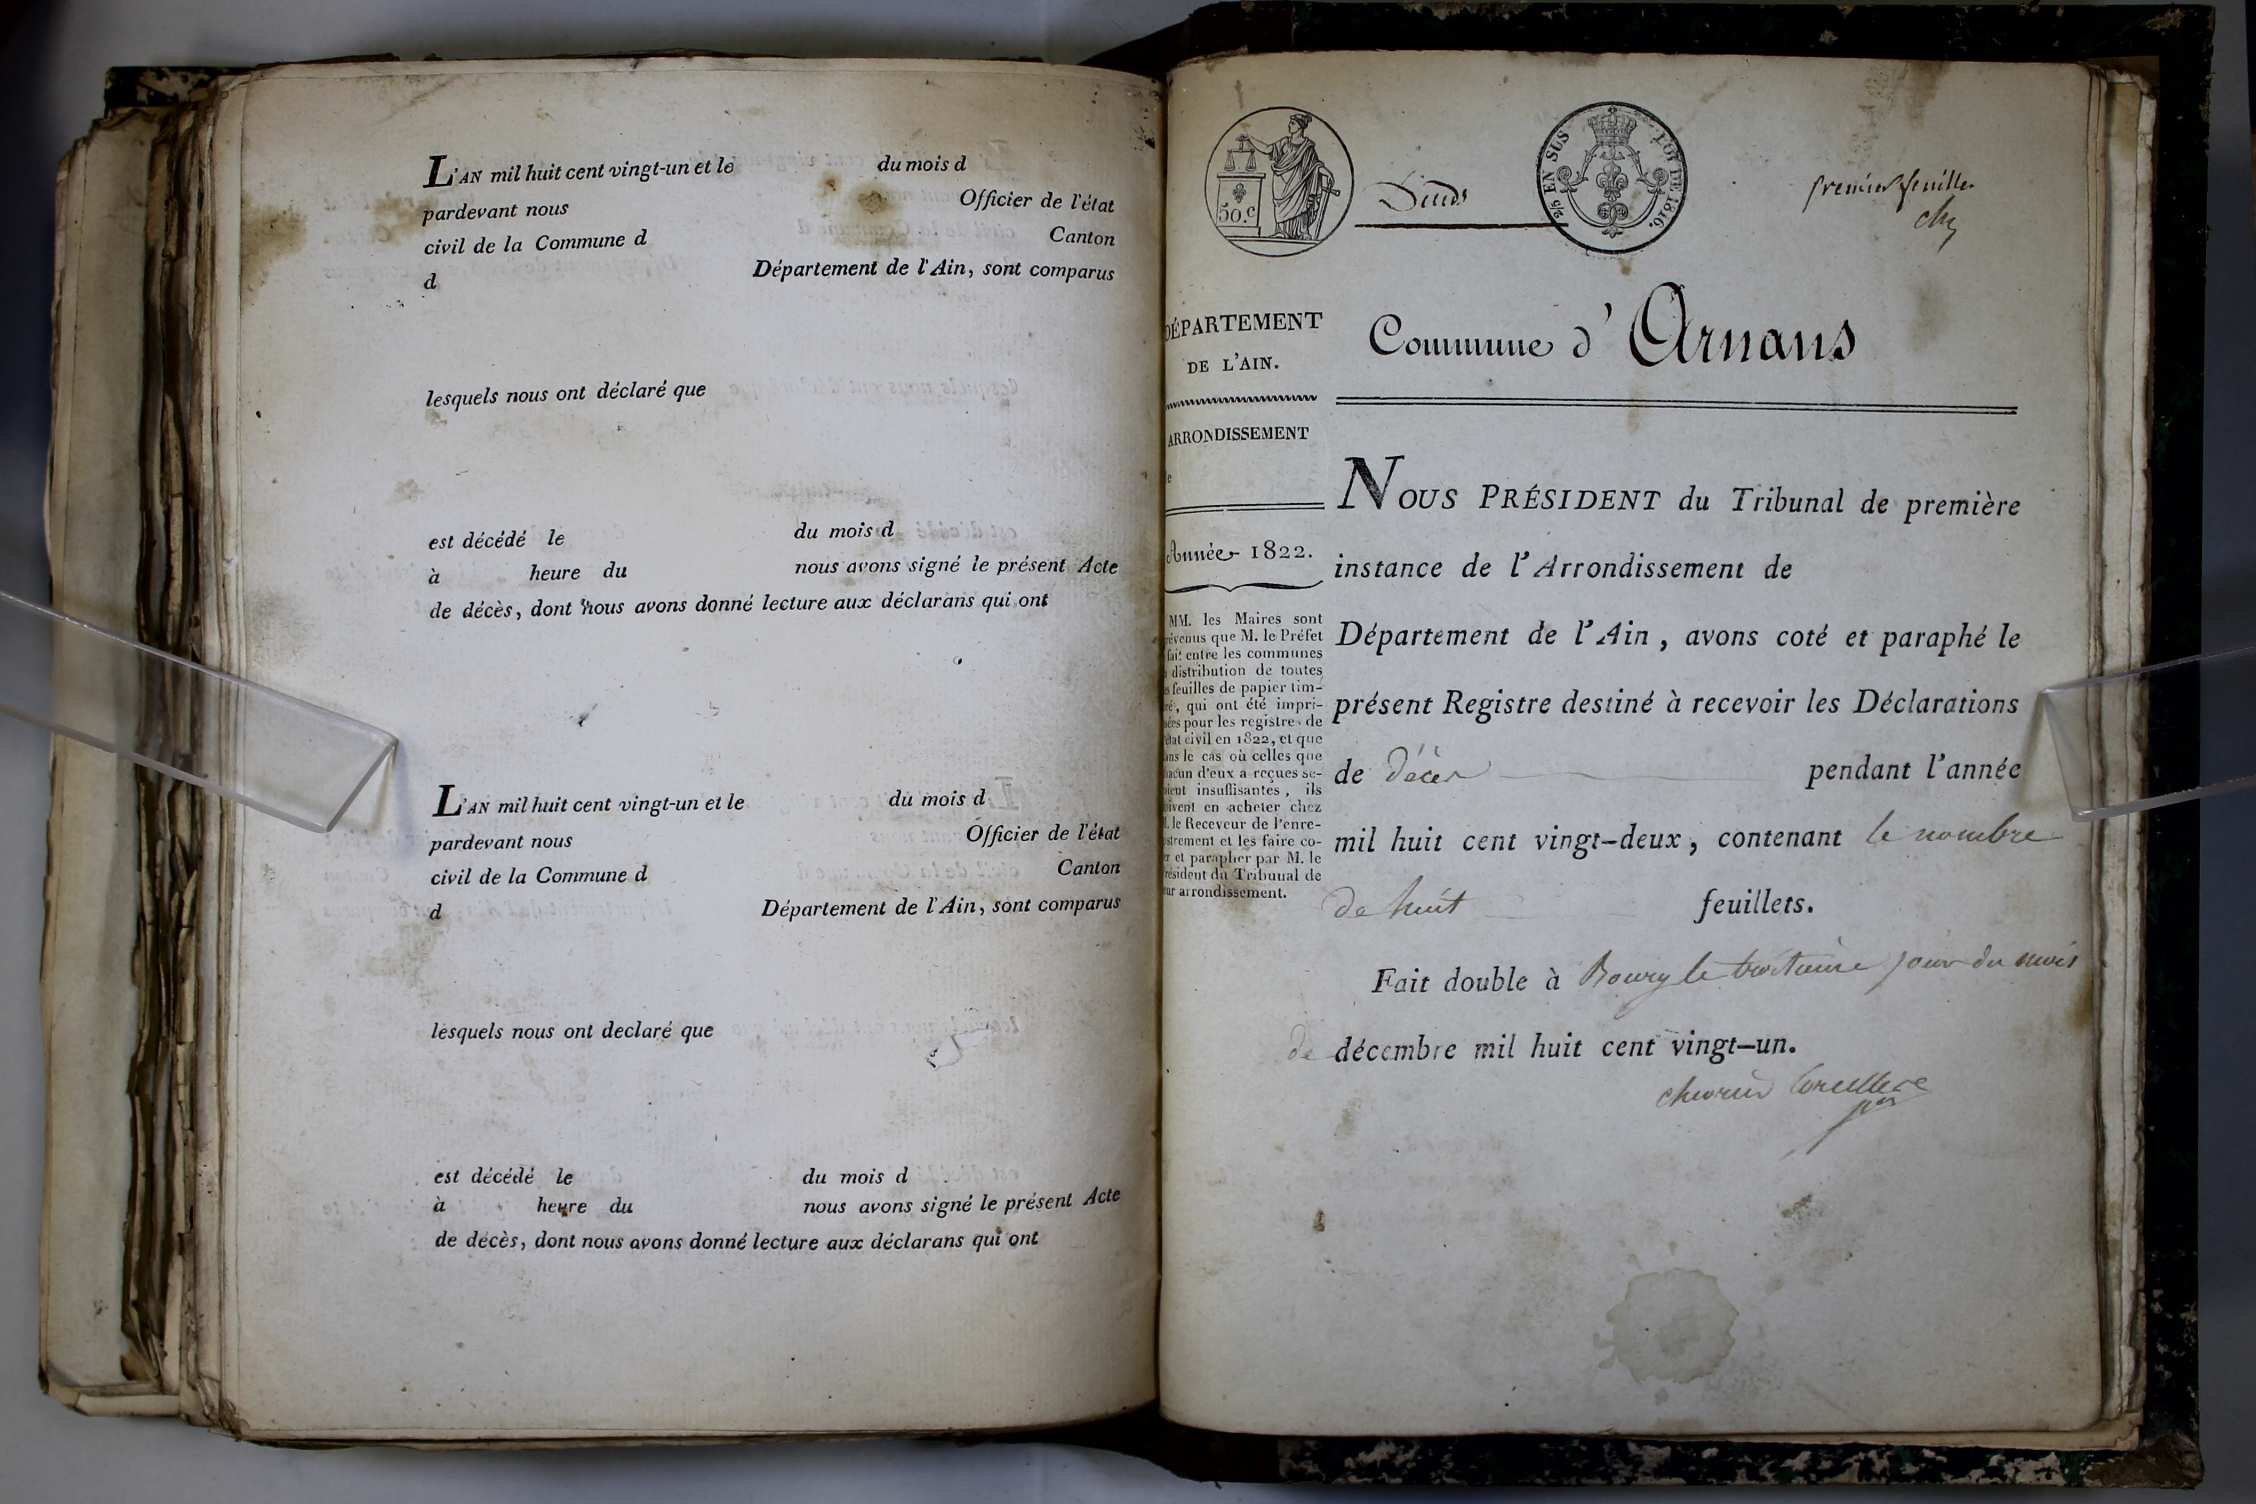 L'AN mil huit cent vingt-un et le du mois d
pardevant nous Officier de l'état
civil de la Commune d Canton
d Département de l'Ain, sont comparus
lesquels nous ont déclaré que
est décédé le du mois d
à heure du nous avons signé le présent Acte
de décès, dont nous avons donné lecture aux déclarans qui ont
L'AN mil huit cent vingt-un et le du mois d
pardevant nous Officier de l'état
civil de la Commune d Canton
d Département de l'Ain, sont comparus
lesquels nous ont declaré que
est décédé le du mois d
à heure du nous avons signé le présent Acte
de décès, dont nous avons donné lecture aux déclarans qui ont
50.c
2/5 EN SUS LOI DE 1816.
premier feuillet
DÉPARTEMENT
DE L'AIN.
ARRONDISSEMENT
de
Année 1822.
MM. les Maires sont
prévenus que M. le Préfet
fait entre les communes
distribution de toutes
les feuilles de papier tim-
bré, qui ont été impri-
mées pour les registres de
l'état civil en 1822, et que
dans le cas où celles que
chacun d'eux a reçues se-
roient insuffisantes, ils
doivent en acheter chez
M. le Receveur de l'enre-
gistrement et les faire co-
ter et parapher par M. le
Président du Tribunal de
leur arrondissement.
Commune d'Arnans
NOUS PRÉSIDENT du Tribunal de première
instance de l'Arrondissement de
Département de l'Ain, avons coté et paraphé le
présent Registre destiné à recevoir les Déclarations
de décès pendant l'année
mil huit cent vingt-deux, contenant le nombre
de huit feuillets.
Fait double à Bourg le troisième jour du mois
de décembre mil huit cent vingt-un.